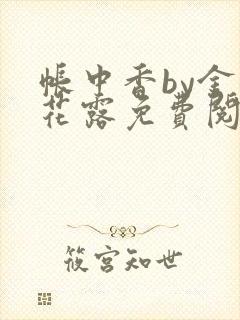 帐中香by金
花露免費閱
筱宫知世